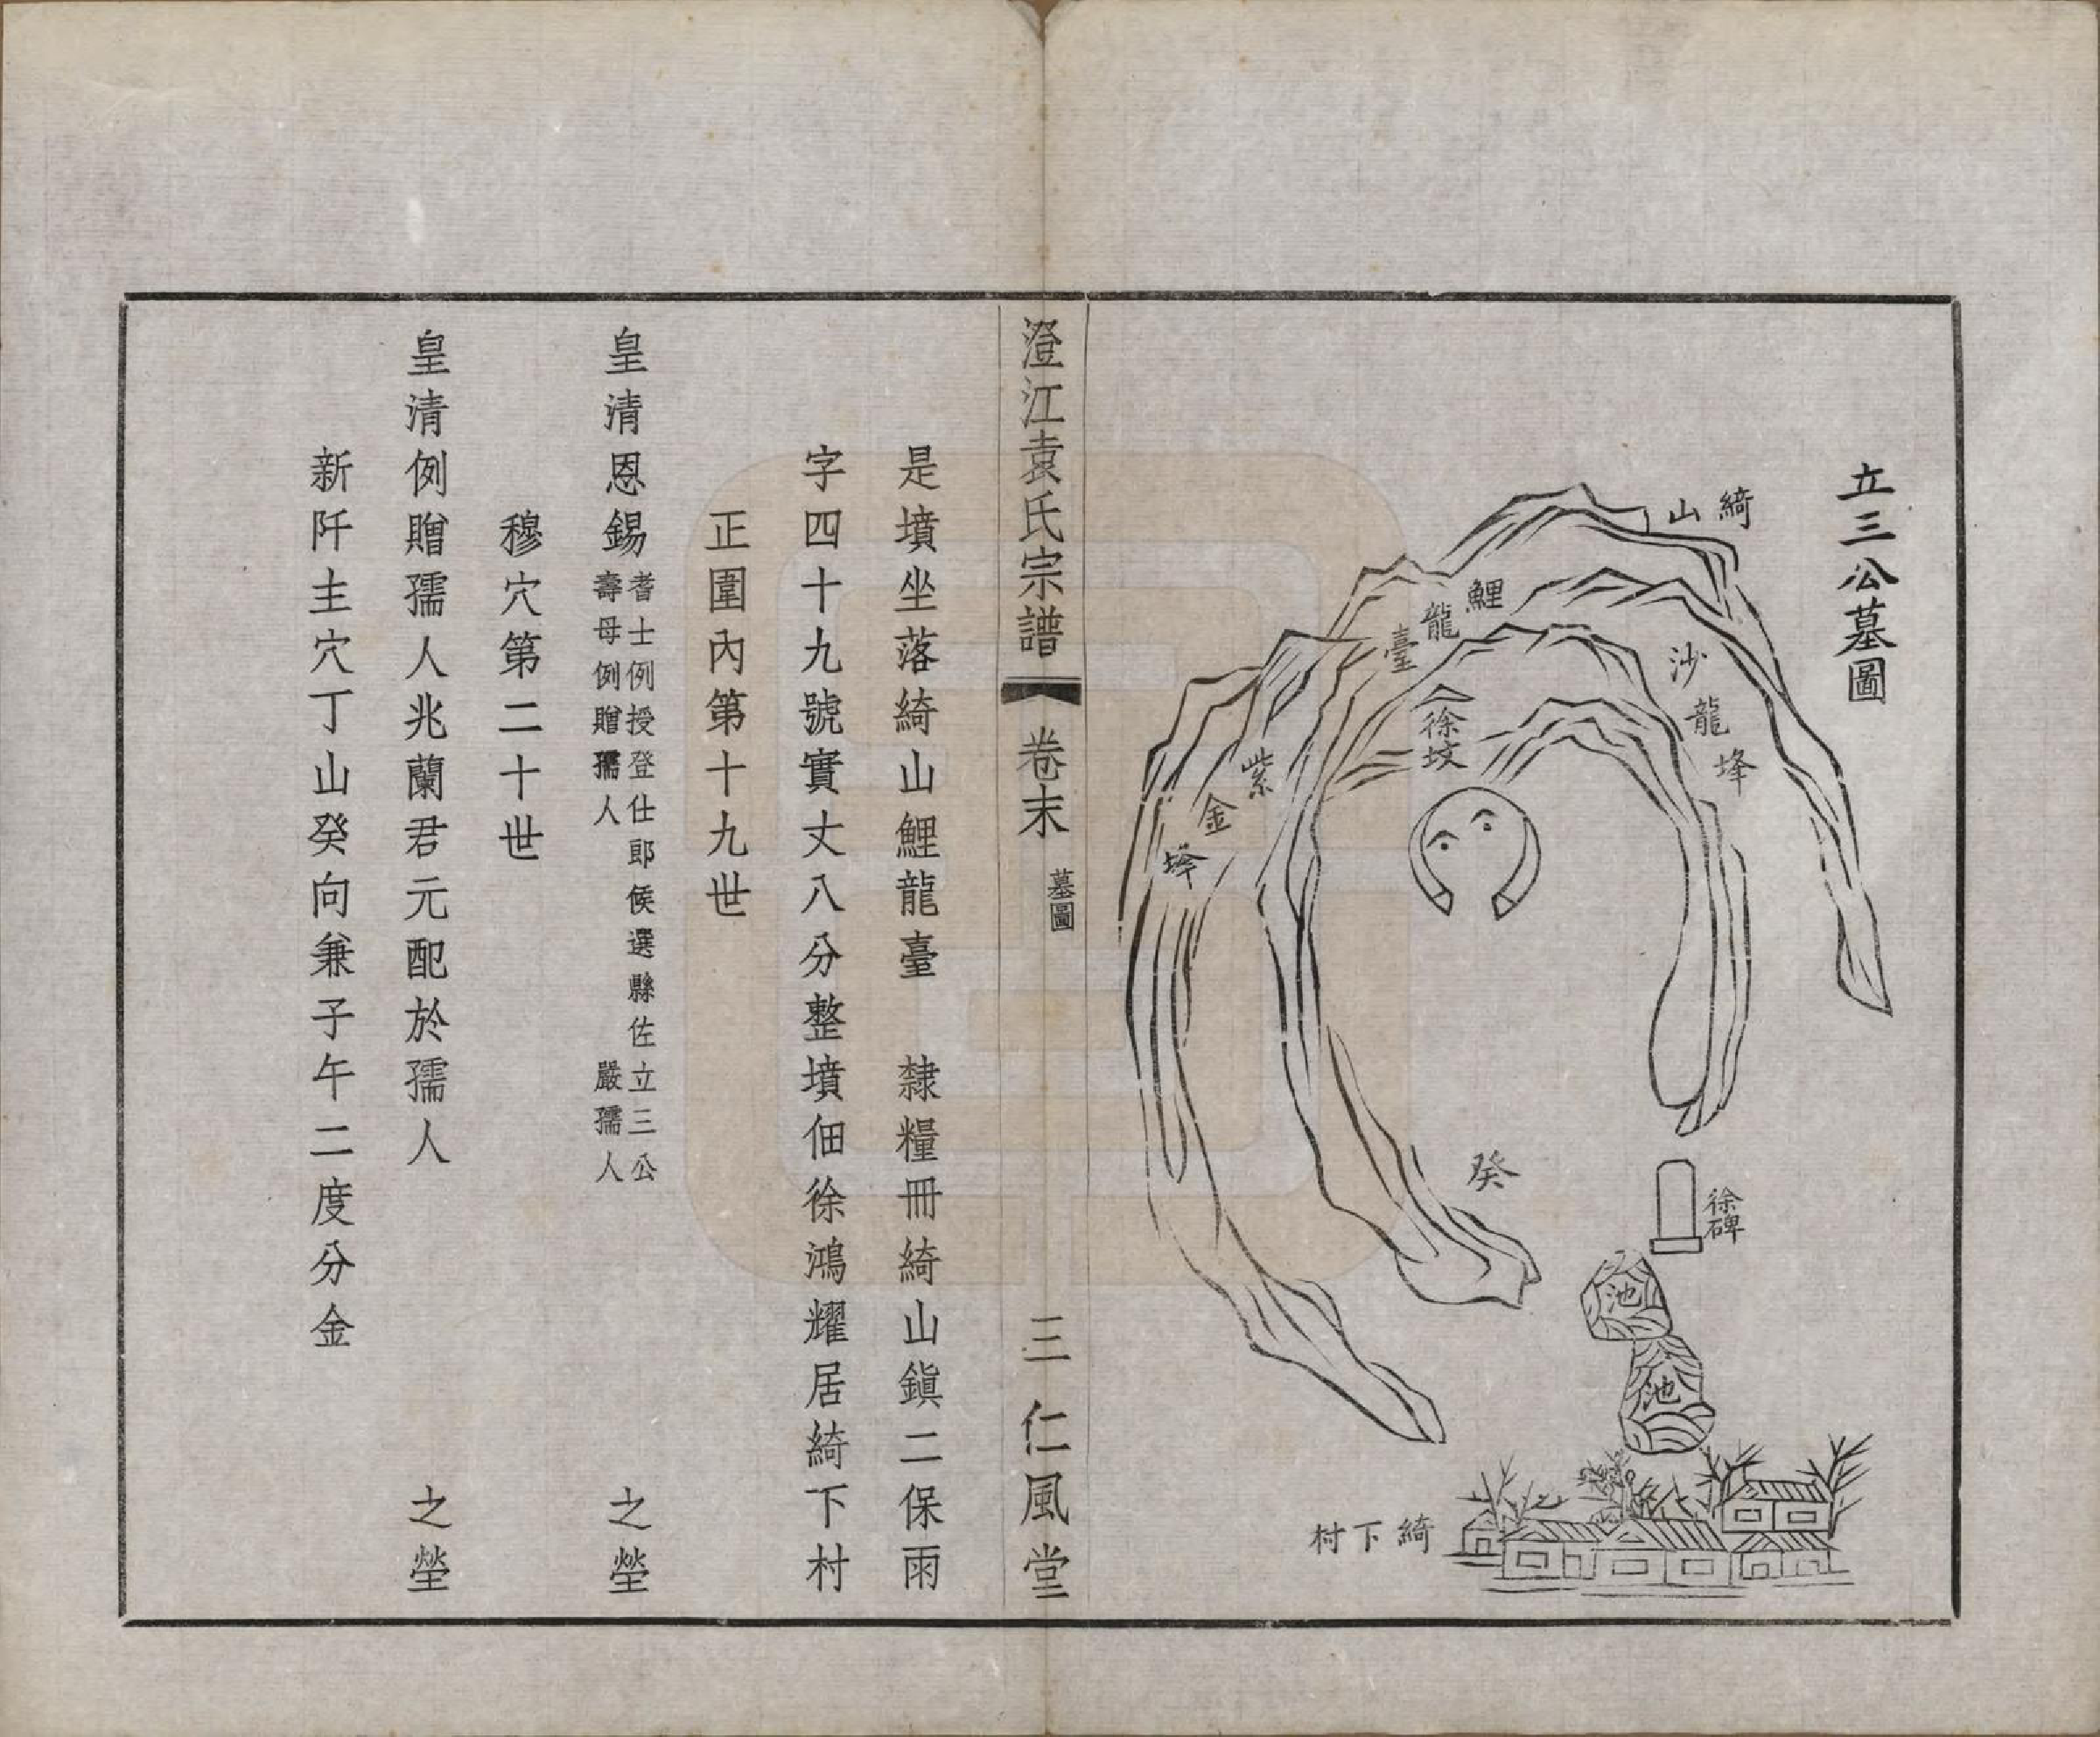 立三公墓圖
綺山
鯉龍臺
沙龍埄
紫金埁
徐坟
癸
徐碑
池
池
綺下村
澄江袁氏宗譜
卷末
墓圖
三
仁風堂
是墳坐落綺山鯉龍臺 隸糧冊綺山鎮二保雨
字四十九號實丈八分整墳佃徐鴻耀居綺下村
正圍內第十九世
皇清恩錫
耆士例授登仕郎候選縣佐立三公
壽母例贈孺人 嚴孺人
之塋
穆穴第二十世
皇清例贈孺人兆蘭君元配於孺人 之塋
新阡主穴丁山癸向兼子午二度分金